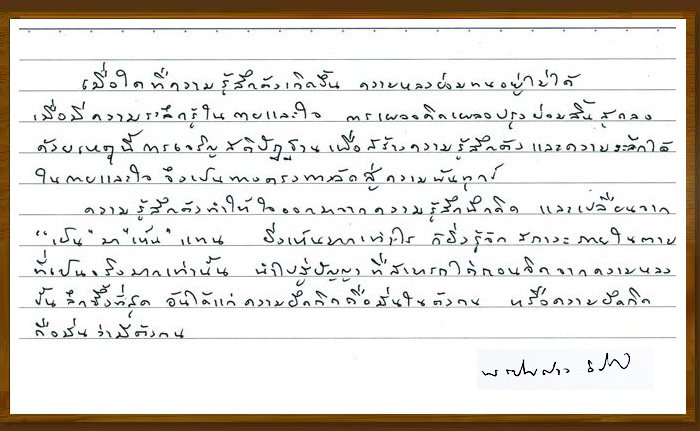 เมื่อใด ที่ความรู้สึกตัวเกิดขึ้น ความหลงย่อมทนอยู่ไม่ได้
เมื่อมีความระลึกรู้ในกายและใจ การเผลอคิดเผลอปรุงย่อมสิ้นสุดลง
ด้วยเหตุนี้การเจริญสติปัฏฐานเพื่อสร้างความรู้สึกตัวและความระลึกได้
ในกายและใจ จึงเป็นทางตรงทางลัดสู่ความพ้นทุกข์
ความรู้สึกตัวทำให้ใจออกมาจากความรู้สึกนึกคิด และเปลี่ยนจาก
"เป็น" มา "เห็น" แทน ยิ่งเห็นมากเท่าไร ก็ยิ่งรู้จักสภาวะภายในตาม
ที่เป็นจริงมากเท่านั้น นำไปสู่ปัญญาที่สามารถไถ่ถอนจิตจากความหลง
ขั้นลึกซึ้งที่สุด อันได้แก่ความยึดติดถือมั่นในตัวตน หรือความยึดติด
ถือมั่นว่ามีตัวตน